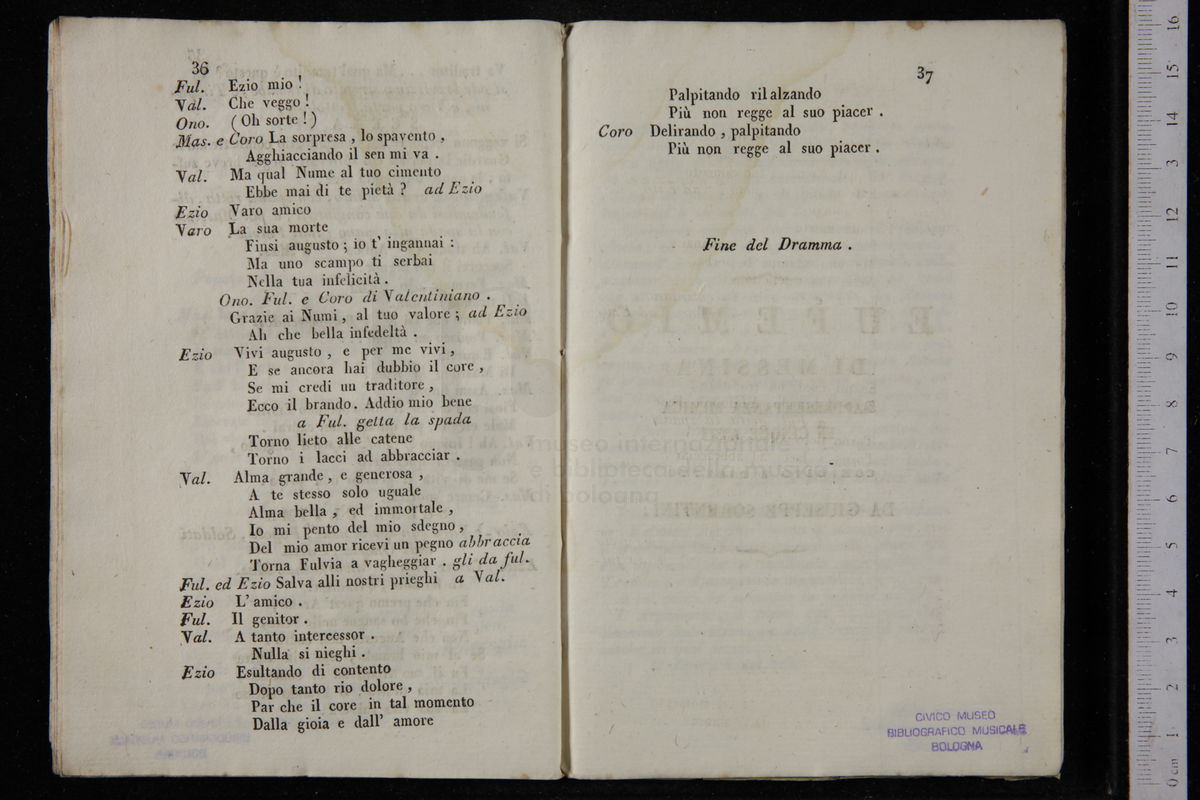 36
Ful. Ezio mio !
Val. Che veggo !
Ono. ( Oh sorte ! )
Mas. e Coro La sorpresa , lo spavento ,
Agghiacciando il sen mi va .
Val. Ma qual Nume al tuo cimento
Ebbe mai di te pietà ? ad Ezio
Ezio Varo amico
Varo La sua morte
Finsi augusto ; io t' ingannai :
Ma uno scampo ti serbai
Nella tua infelicità .
Ono. Ful. e Coro di Valentiniano .
Grazie ai Numi , al tuo valore ; ad Ezio
Ah che bella infedeltà .
Ezio Vivi augusto , e per me vivi ,
E se ancora hai dubbio il core ,
Se mi credi un traditore ,
Ecco il brando. Addio mio bene
a Ful. getta la spada
Torno lieto alle catene
Torno i lacci ad abbracciar .
Val. Alma grande , e generosa ,
A te stesso solo uguale
Alma bella , ed immortale ,
Io mi pento del mio sdegno ,
Del mio amor ricevi un pegno abbraccia
Torna Fulvia a vagheggiar . gli da ful.
Ful. ed Ezio Salva alli nostri prieghi a Val.
Ezio L' amico .
Ful. Il genitor .
Val. A tanto intercessor .
Nulla si nieghi .
Ezio Esultando di contento
Dopo tanto rio dolore ,
Par che il core in tal momento
Dalla gioia e dall' amore
37
Palpitando ril alzando
Più non regge al suo piacer .
Coro Delirando , palpitando
Più non regge al suo piacer .
Fine del Dramma .
museo internazionale
e biblioteca della musica
di bologna
CIVICO MUSEO
BIBLIOGRAFICO MUSICALE
BOLOGNA
0 cm 1 2 3 4 5 6 7 8 9 10 11 12 13 14 15 16